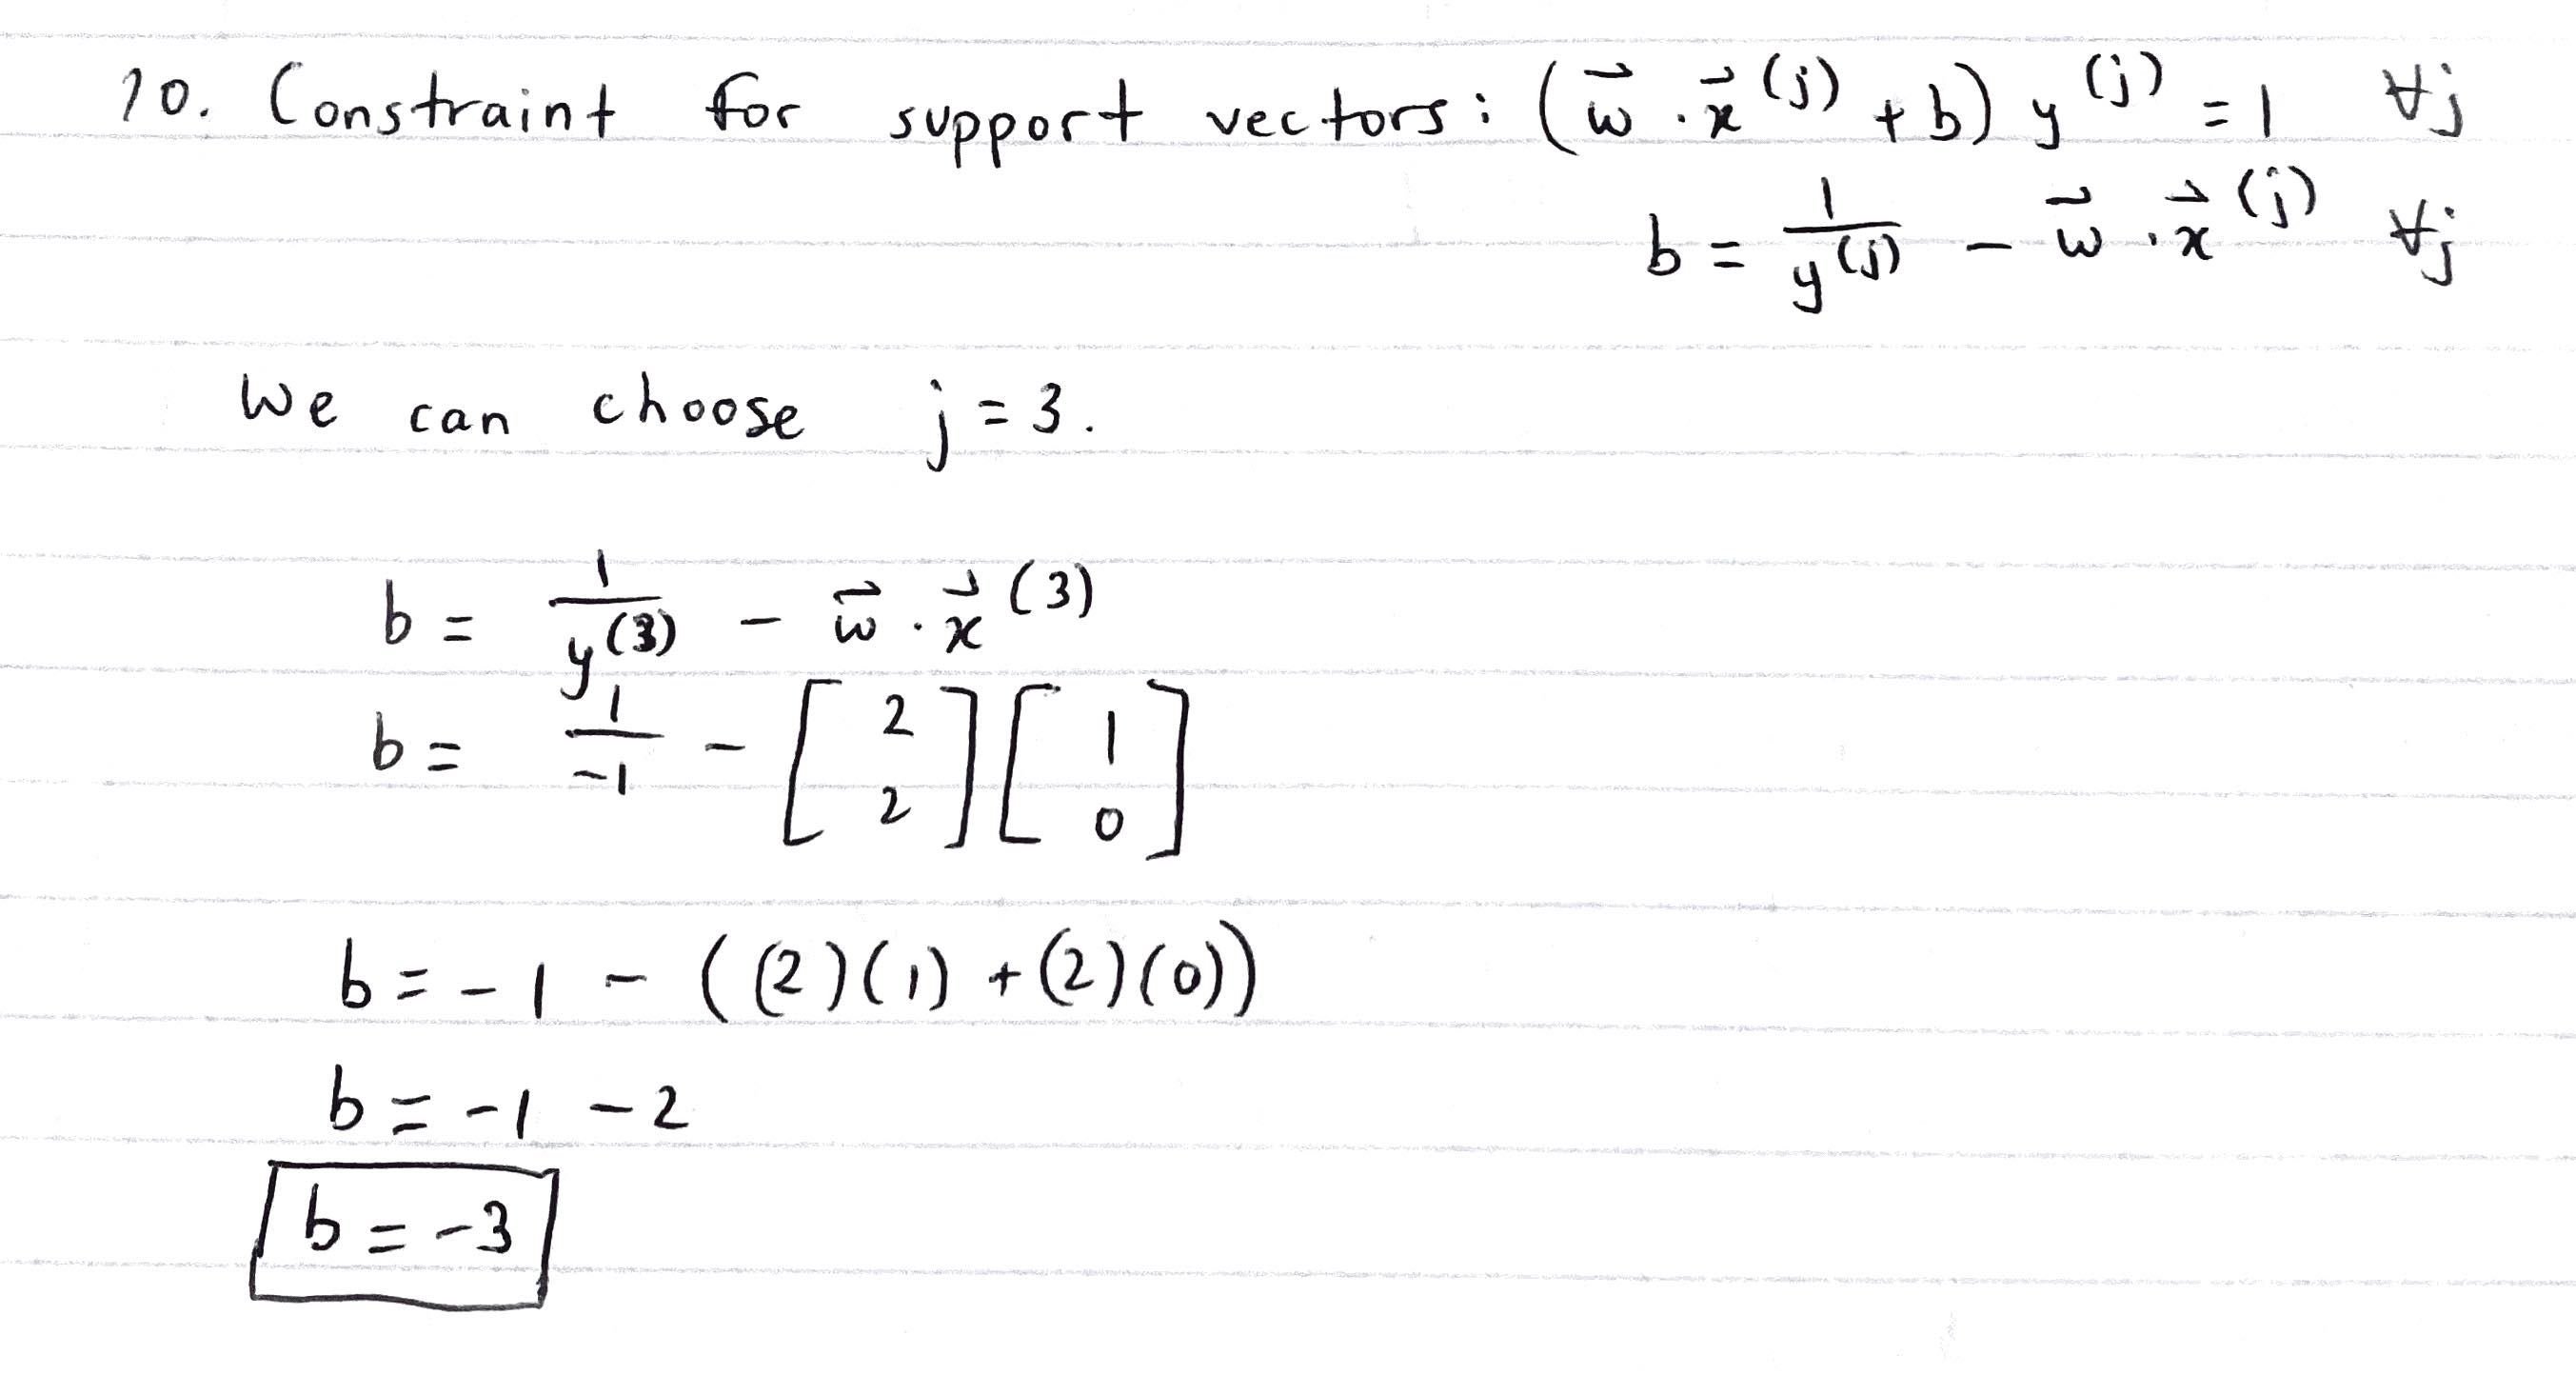 10. Constraint for support vectors: (w⃗ · x⃗^(j) + b) y^(j) = 1 ∀j
b = 1/y^(j) − w⃗ · x⃗^(j) ∀j
We can choose j = 3.
b = 1/y^(3) − w⃗ · x⃗^(3)
b = 1/−1 − [2 2][1 0]
b = −1 − ((2)(1) + (2)(0))
b = −1 − 2
b = −3